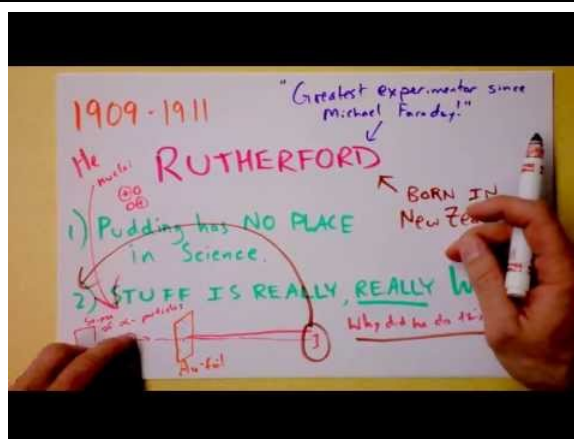 1909-1911
"Greatest experimentor since
Michael Faraday!"
He
nuclei
RUTHERFORD
BORN IN
New
1) Pudding has NO PLACE
in Science.
2) STUFF IS REALLY, REALLY
of α-particles
Why did he do
Au-foil